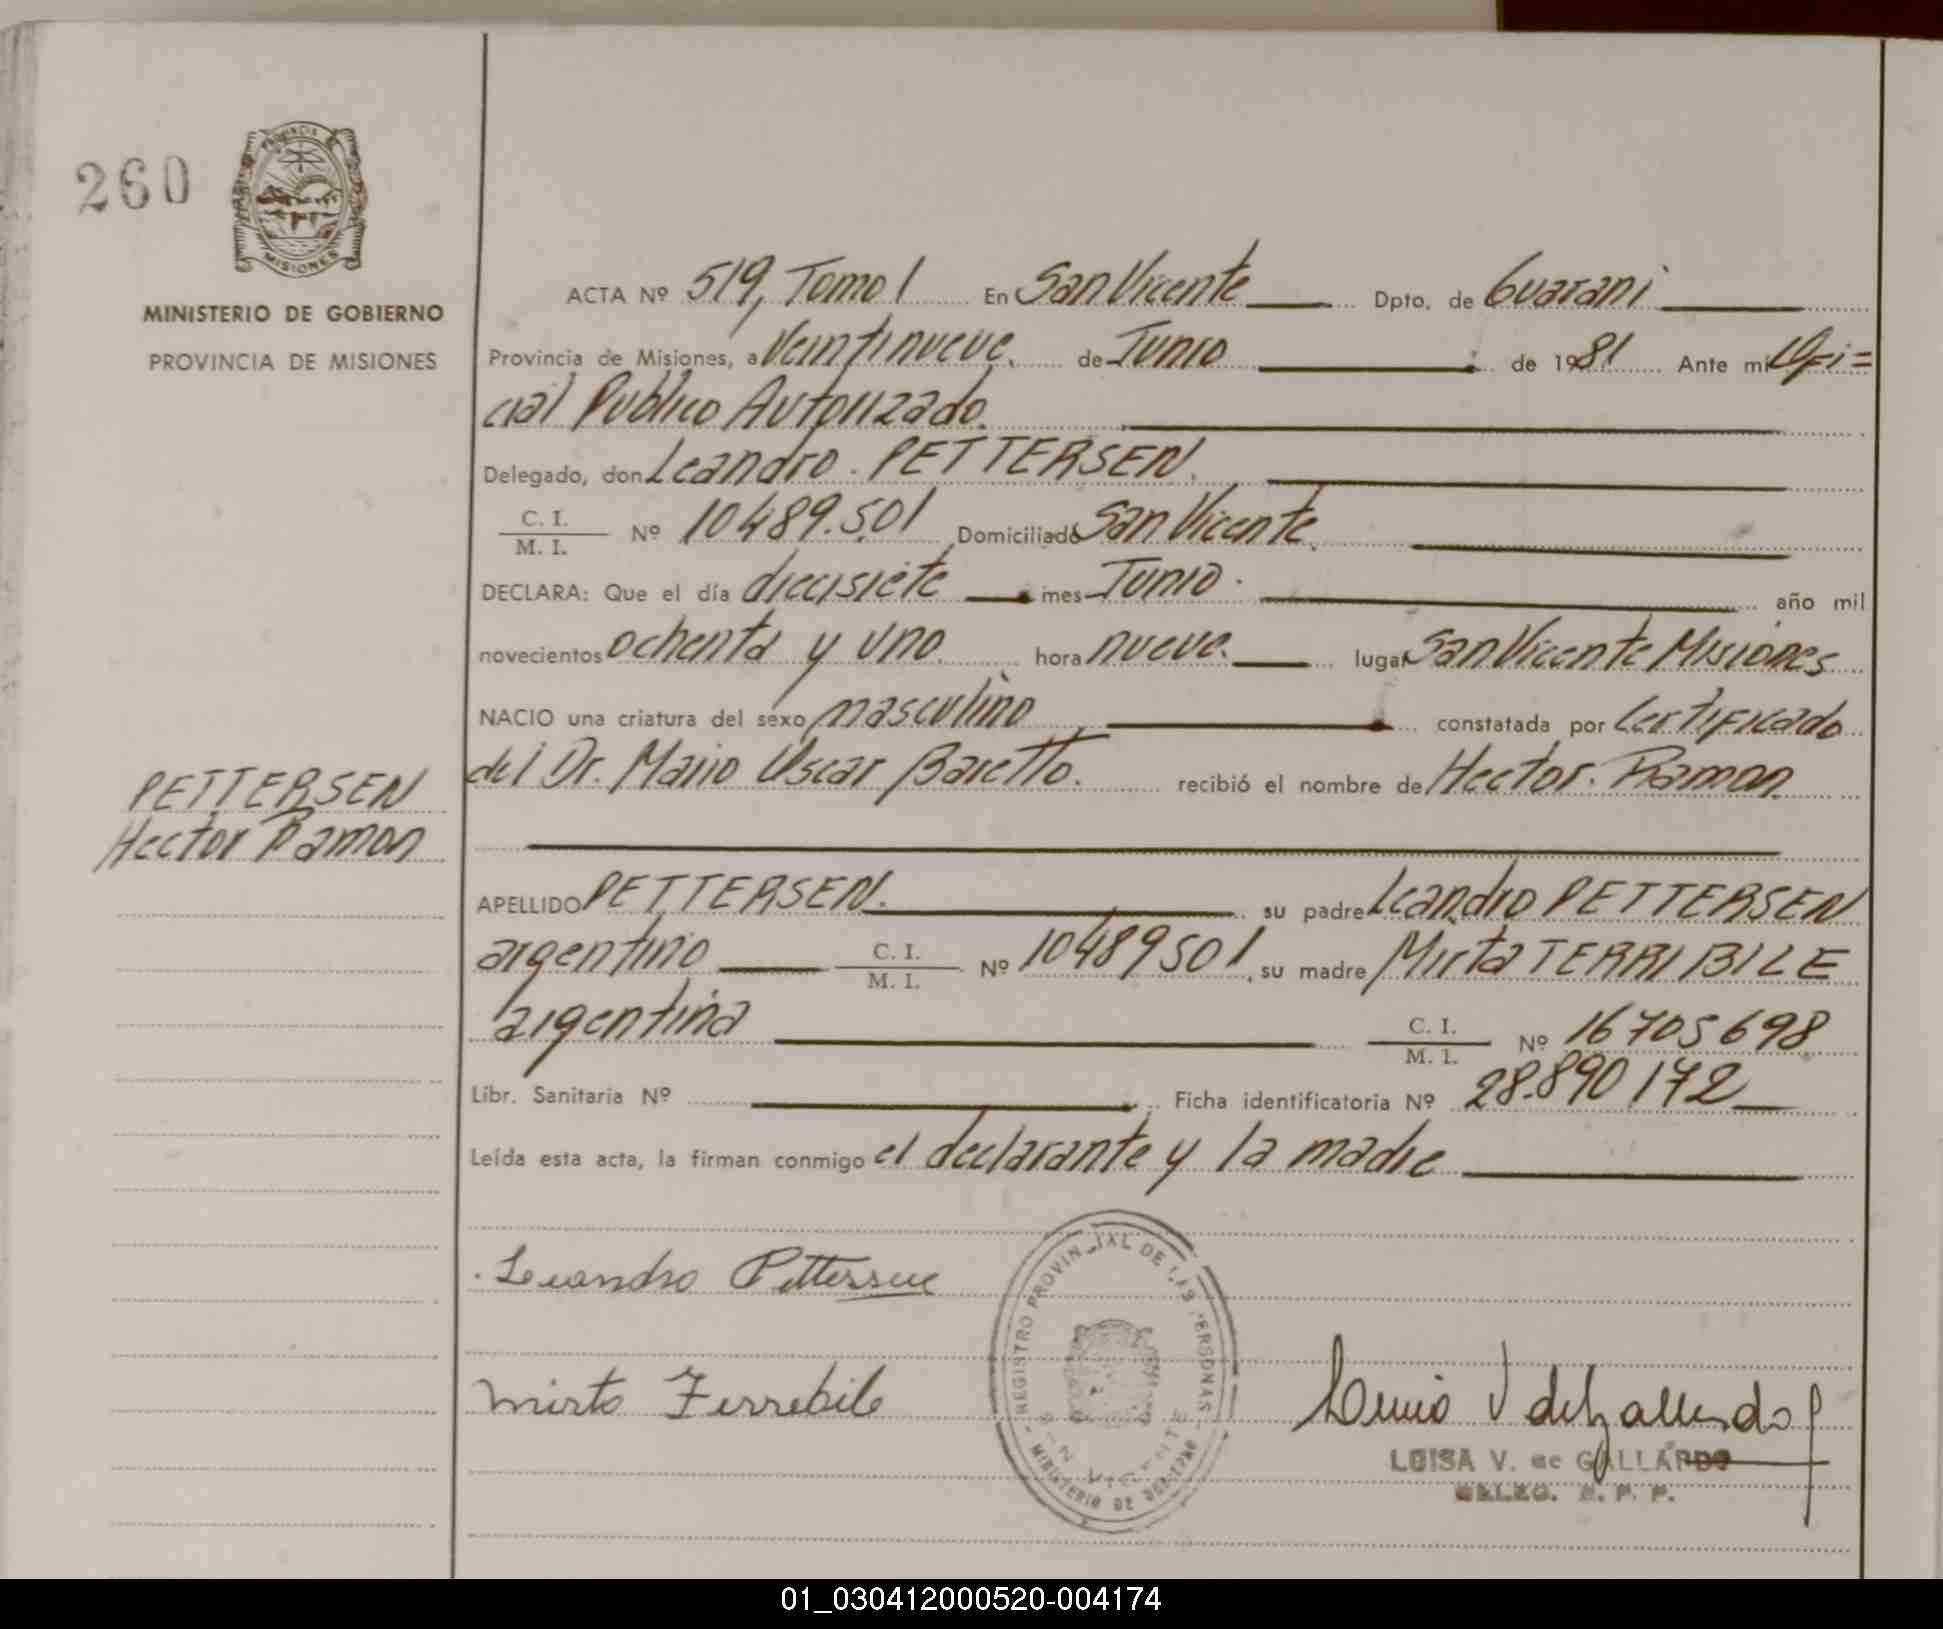 260
PROVINCIA DE
MISIONES
MINISTERIO DE GOBIERNO
PROVINCIA DE MISIONES
ACTA Nº 519, Tomo I En San Vicente Dpto. de Guarani
Provincia de Misiones, a Veintinueve. de Junio de 1981 Ante mi Ofi=
cial Publico Autorizado.
Delegado, don Leandro. PETTERSEN.
C. I.
M. I. Nº 10489.501 Domiciliado San Vicente.
DECLARA: Que el día diecisiete mes Junio. año mil
novecientos ochenta y uno hora nueve. lugar San Vicente Misiones
NACIO una criatura del sexo masculino constatada por Certificado
del Dr. Mario Oscar Baretto. recibió el nombre de Hector. Ramon
PETTERSEN
Hector Ramon
APELLIDO PETTERSEN. su padre Leandro PETTERSEN
argentino C. I.
M. I. Nº 10489501, su madre Mirta TERRIBILE
argentina C. I.
M. I. Nº 16705698
Libr. Sanitaria Nº Ficha identificatoria Nº 28.890172
Leída esta acta, la firman conmigo el declarante y la madre
Leandro Pettersen
Mirta Terrebile
REGISTRO PROVINCIAL DE LAS PERSONAS
SAN VICENTE
MINISTERIO DE GOBIERNO
LUISA V. de GALLARDO
DELEG. R. P. P.
01_030412000520-004174